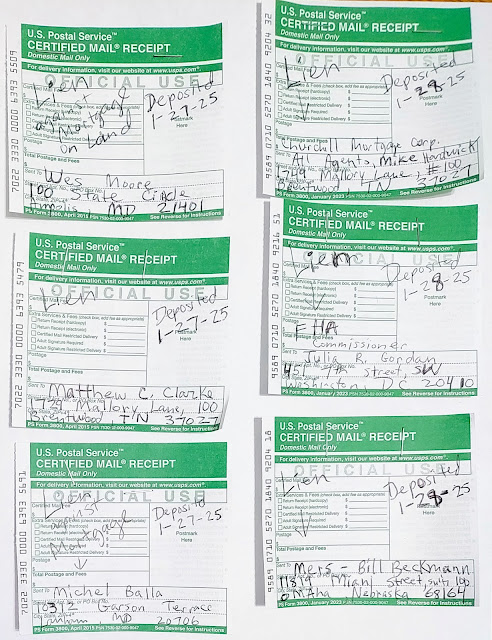 U.S. Postal Service™
CERTIFIED MAIL® RECEIPT
Domestic Mail Only
For delivery information, visit our website at www.usps.com®.
OFFICIAL USE
Lien
against
Mortgage
on Land
Deposited
1-27-25
Extra Services & Fees (check box, add fee as appropriate)
Return Receipt (hardcopy) $
Return Receipt (electronic) $
Certified Mail Restricted Delivery $
Adult Signature Required $
Postmark
Here
Total Postage and Fees
Sent To
Wes Moore
100 State Circle
MD 21401
PS Form 3800, April 2015 PSN 7530-02-000-9047 See Reverse for Instructions
U.S. Postal Service™
CERTIFIED MAIL® RECEIPT
Domestic Mail Only
For delivery information, visit our website at www.usps.com®.
OFFICIAL USE
Lien
Deposited
1-28-25
Extra Services & Fees (check box, add fee as appropriate)
Return Receipt (hardcopy) $
Return Receipt (electronic) $
Certified Mail Restricted Delivery $
Adult Signature Required $
Postmark
Here
9589 0710 5270 1840 9204 32
Churchill Mortgage Corp.
All Agents, Mike Hardwick
1749 Mallory Lane, #100
Brentwood TN 37027
PS Form 3800, January 2023 PSN 7530-02-000-9047 See Reverse for Instructions
U.S. Postal Service™
CERTIFIED MAIL® RECEIPT
Domestic Mail Only
For delivery information, visit our website at www.usps.com®.
OFFICIAL USE
Lien
Deposited
1-27-25
Extra Services & Fees (check box, add fee as appropriate)
Return Receipt (hardcopy) $
Return Receipt (electronic) $
Certified Mail Restricted Delivery $
Adult Signature Required $
Adult Signature Restricted Delivery $
Postmark
Here
Postage
Total Postage and Fees
Sent To
Matthew C. Clarke
1749 Mallory Lane, 100
Brentwood TN 37027
PS Form 3800, April 2015 PSN 7530-02-000-9047 See Reverse for Instructions
U.S. Postal Service™
CERTIFIED MAIL® RECEIPT
Domestic Mail Only
For delivery information, visit our website at www.usps.com®.
OFFICIAL USE
Lien
Deposited
1-28-25
Postmark
Here
9589 0710 5270 1840 9216 51
FHA
Commissioner
Julia R. Gordan
451 street, SW
Washington, DC 20410
PS Form 3800, January 2023 PSN 7530-02-000-9047 See Reverse for Instructions
U.S. Postal Service™
CERTIFIED MAIL® RECEIPT
Domestic Mail Only
For delivery information, visit our website at www.usps.com®.
OFFICIAL USE
Lien
against
Mortgage
Deposited
1-27-25
Extra Services & Fees (check box, add fee as appropriate)
Postmark
Here
Postage
Total Postage and Fees
Sent To
Michel Balla
10312 Garson Terrace
Lanham MD 20706
PS Form 3800, April 2015 PSN 7530-02-000-9047 See Reverse for Instructions
U.S. Postal Service™
CERTIFIED MAIL® RECEIPT
Domestic Mail Only
For delivery information, visit our website at www.usps.com®.
OFFICIAL USE
Lien
Deposited
1-28-25
Extra Services & Fees (check box, add fee as appropriate)
Postmark
Here
9589 0710 5270 1840 9204 18
Total Postage and Fees
Mers - Bill Beckmann
11819 Miami street, suite 100
Omaha Nebraska 68164
PS Form 3800, January 2023 PSN 7530-02-000-9047 See Reverse for Instructions